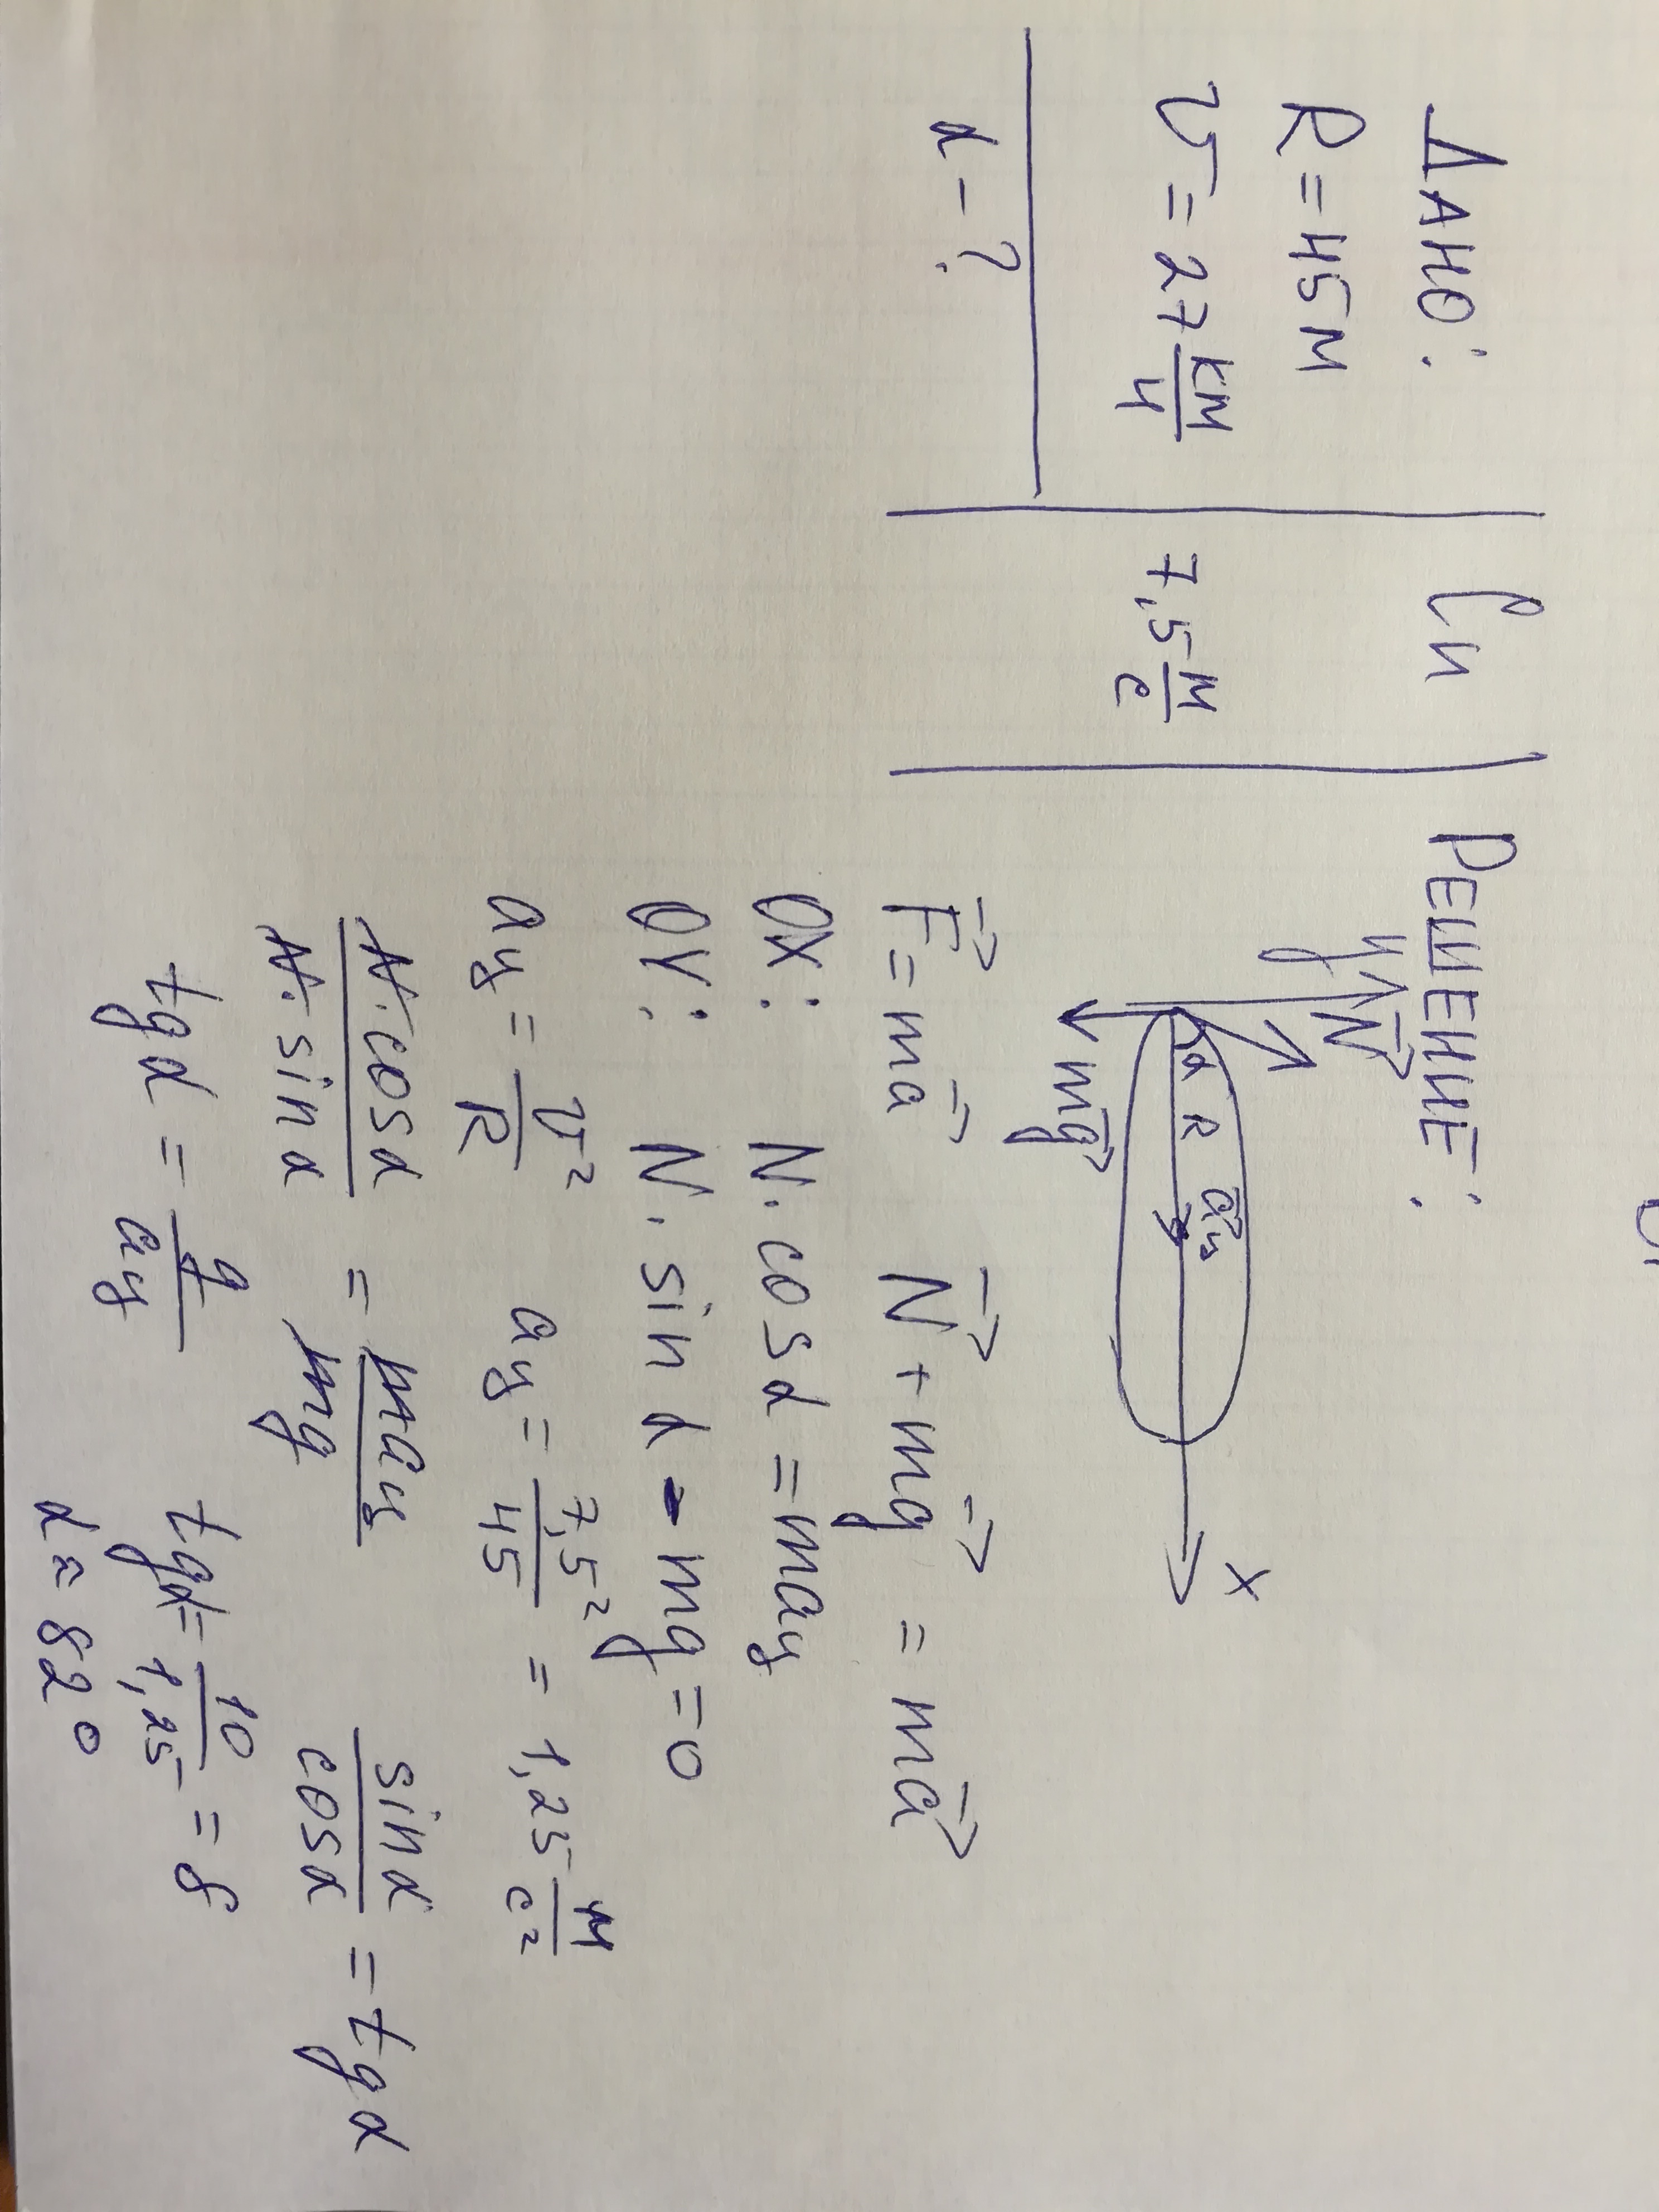 ДАНО: Си РЕШЕНИЕ:
R=45м
υ=27 км/ч 7,5 м/с
α-?
y N⃗
α R a⃗ц x
mg⃗
F⃗=ma⃗ N⃗+mg⃗=ma⃗
OX: N·cosα=maц
OY: N·sinα-mg=0
aц=υ²/R aц=7,5²/45=1,25 м/с²
N·cosα/N·sinα=maц/mg sinα/cosα=tgα
tgα=g/aц tgα=10/1,25=8
α≈82°